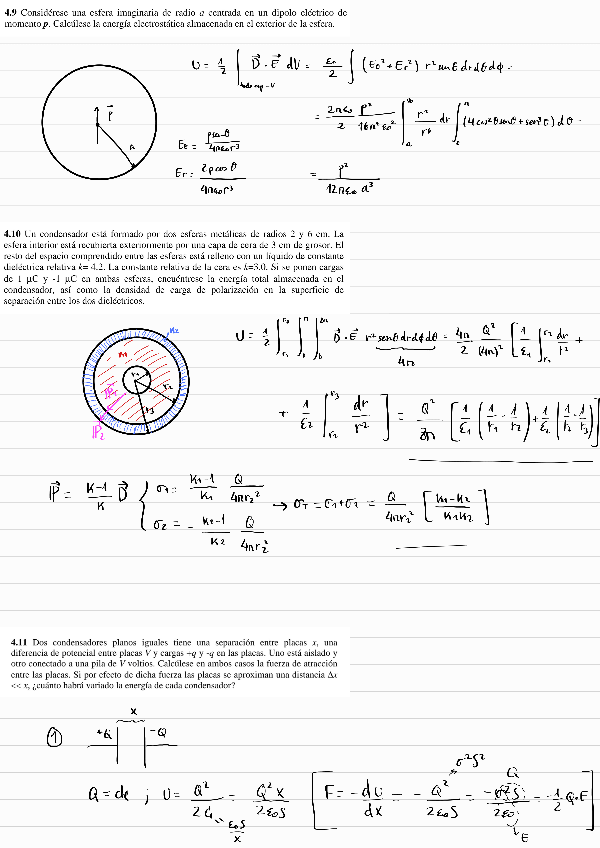 4.9 Considérese una esfera imaginaria de radio a centrada en un dipolo eléctrico de
momento p. Calcúlese la energía electrostática almacenada en el exterior de la esfera.
U = 1/2 ∫ D⃗ · E⃗ dV = ε₀/2 ∫ (Eθ² + Er²) r² senθ dr dθ dϕ.
p⃗
a
Eθ = p senθ / 4πε₀r³
= 2πε₀/2 p²/16π²ε₀² ∫ r²/r⁶ dr ∫ (4cos²θ senθ + sen³θ) dθ.
Er = 2p cosθ / 4πε₀r³
= p² / 12πε₀ a³
4.10 Un condensador está formado por dos esferas metálicas de radios 2 y 6 cm. La
esfera interior está recubierta exteriormente por una capa de cera de 3 cm de grosor. El
resto del espacio comprendido entre las esferas está relleno con un líquido de constante
dieléctrica relativa k= 4.2. La constante relativa de la cera es k=3.0. Si se ponen cargas
de 1 μC y -1 μC en ambas esferas, encuéntrese la energía total almacenada en el
condensador, así como la densidad de carga de polarización en la superficie de
separación entre los dos dieléctricos.
K2
K1
r1
r2
r3
P⃗2
U = 1/2 ∫ ∫ ∫ D⃗ · E⃗ r² senθ dr dϕ dθ = 4π/2 Q²/(4π)² [ 1/ε₁ ∫ dr/r² +
4π
+ 1/ε₂ ∫ dr/r² ] = Q²/8π [ 1/ε₁ (1/r₁ - 1/r₂) + 1/ε₂ (1/r₂ - 1/r₃) ]
P⃗ = K-1/K D⃗
σ₁ = K₁-1/K₁ Q/4πr₂²
→ σT = σ₁+σ₂ = Q/4πr₂² [ K₁-K₂ / K₁K₂ ]
σ₂ = - K₂-1/K₂ Q/4πr₂²
4.11 Dos condensadores planos iguales tiene una separación entre placas x, una
diferencia de potencial entre placas V y cargas +q y -q en las placas. Uno está aislado y
otro conectado a una pila de V voltios. Calcúlese en ambos casos la fuerza de atracción
entre las placas. Si por efecto de dicha fuerza las placas se aproximan una distancia Δx
<< x, ¿cuánto habrá variado la energía de cada condensador?
x
① +Q -Q
σ²S²
Q = cte ; U = Q²/2C = Q²x/2ε₀S
F = - dU/dx = - Q²/2ε₀S = - σ²S/2ε₀ = - 1/2 Q·E
ε₀S/x
Q
E